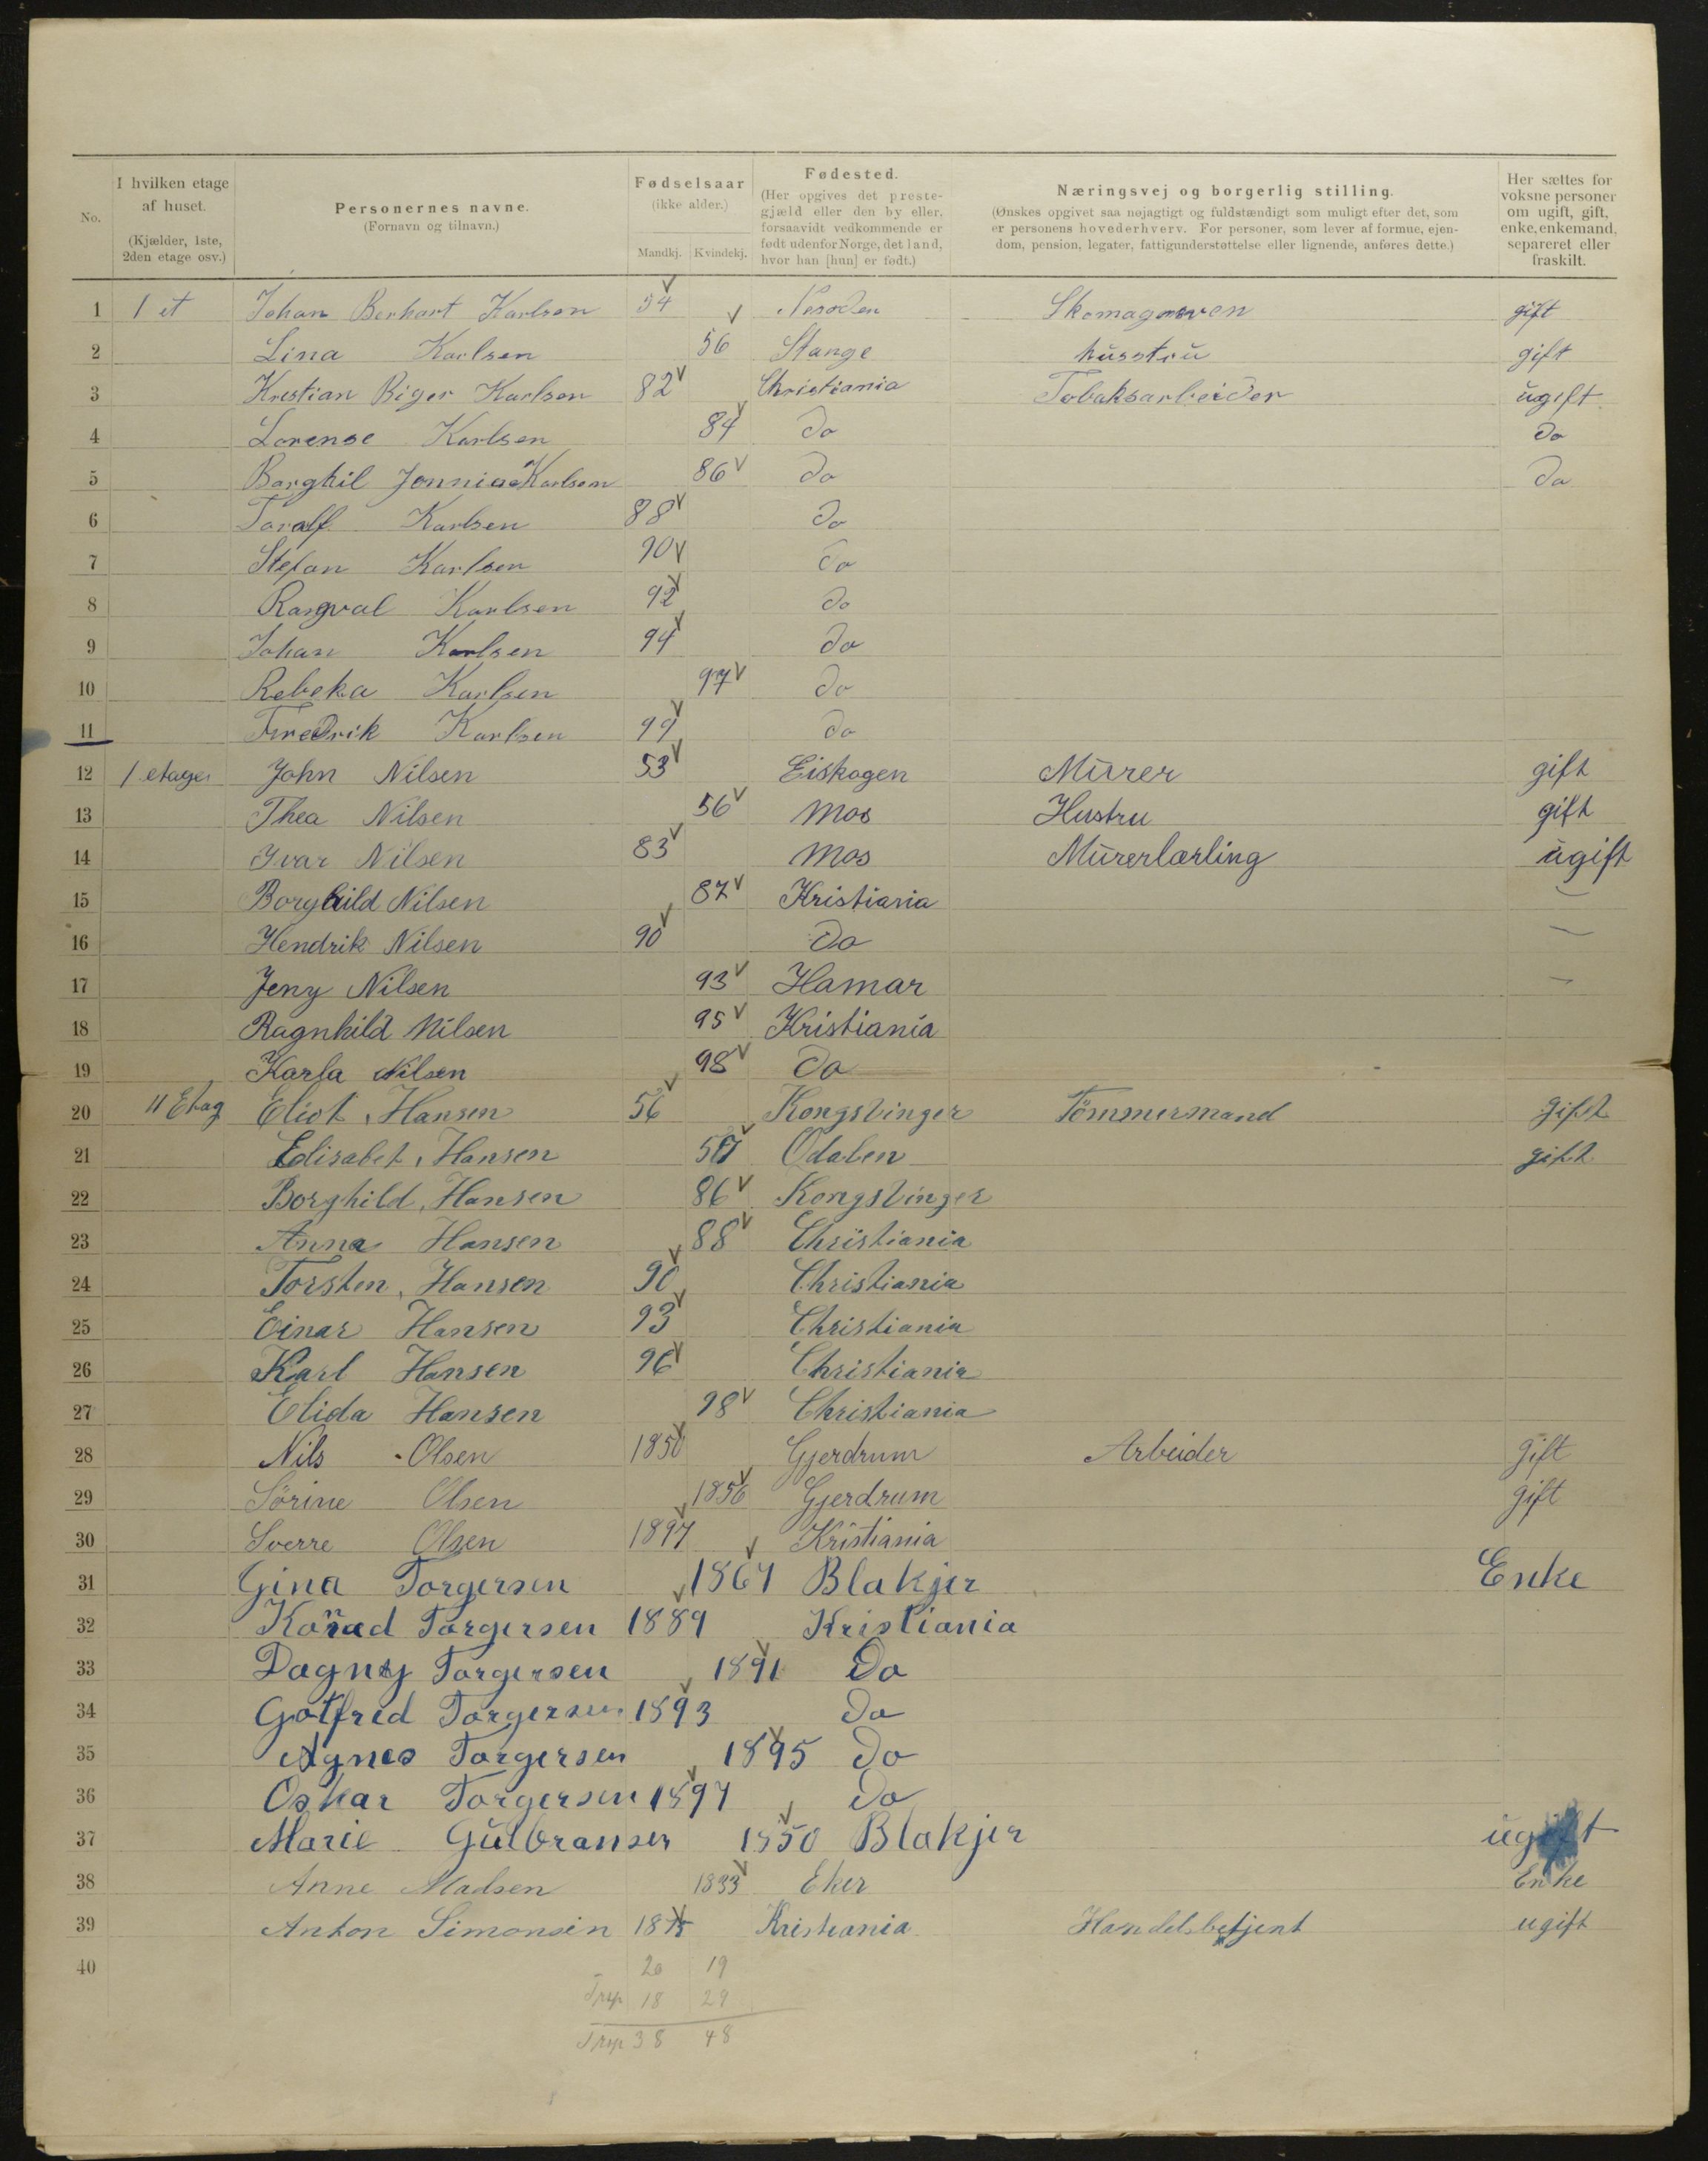 No.
I hvilken etage af huset. (Kjælder, 1ste, 2den etage osv.)
Personernes navne. (Fornavn og tilnavn.)
Fødselsaar (ikke alder.) Mandkj. Kvindekj.
Fødested. (Her opgives det prestegjæld eller den by eller, forsaavidt vedkommende er født udenfor Norge, det land, hvor han [hun] er født.)
Næringsvej og borgerlig stilling. (Ønskes opgivet saa nøjagtigt og fuldstændigt som muligt efter det, som er personens hovederhverv. For personer, som lever af formue, ejendom, pension, legater, fattigunderstøttelse eller lignende, anføres dette.)
Her sættes for voksne personer om ugift, gift, enke, enkemand, separeret eller fraskilt.
1 1 et Johan Berhart Karlsen 54 Nesoden Skomagersven gift
2 Lina Karlsen 56 Stange hüsstrü gift
3 Krestian Biger Karlsen 82 Christiania Tobaksarbeider ügift
4 Lorense Karlsen 84 Do Do
5 Borghil Karlsen 86 Do Do
6 Toralf Karlsen 88 Do
7 Stefan Karlsen 90 Do
8 Rangval Karlsen 92 Do
9 Johan Karlsen 94 Do
10 Rebeka Karlsen 97 Do
11 Fredrik Karlsen 99 Do
12 1 etage John Nilsen 53 Eiskogen Mürer gift
13 Thea Nilsen 56 Mos Hustru gift
14 Ivar Nilsen 83 Mos Mürerlærling ügift
15 Borghild Nilsen 87 Kristiania —
16 Hendrik Nilsen 90 Do —
17 Jeny Nilsen 93 Hamar —
18 Ragnhild Nilsen 95 Kristiania
19 Karla Nilsen 98 Do
20 11 Etag Eliot Hansen 56 Kongsvinger Tömmermand gift
21 Elisabet, Hansen 57 Odalen gift
22 Borghild, Hansen 86 Kongsvinger
23 Anna Hansen 88 Christiania
24 Torsten, Hansen 90 Christiania
25 Einar Hansen 93 Christiania
26 Karl Hansen 96 Christiania
27 Elida Hansen 98 Christiania
28 Nils Olsen 1850 Gjerdrum Arbeider gift
29 Sörine Olsen 1856 Gjerdrum gift
30 Sverre Olsen 1897 Kristiania
31 Gina Torgersen 1867 Blakjer Enke
32 Konrad Torgersen 1889 Kristiania
33 Dagny Torgersen 1891 Do
34 Gotfred Torgersen 1893 Do
35 Agnes Torgersen 1895 Do
36 Oskar Torgersen 1897 Do
37 Marie Gülbransen 1850 Blakjer ügift
38 Anne Madsen 1833 Eker Enke
39 Anton Simonsen 1875 Kristiania Handelsbetjent ugift
40
20 19
18 29
38 48